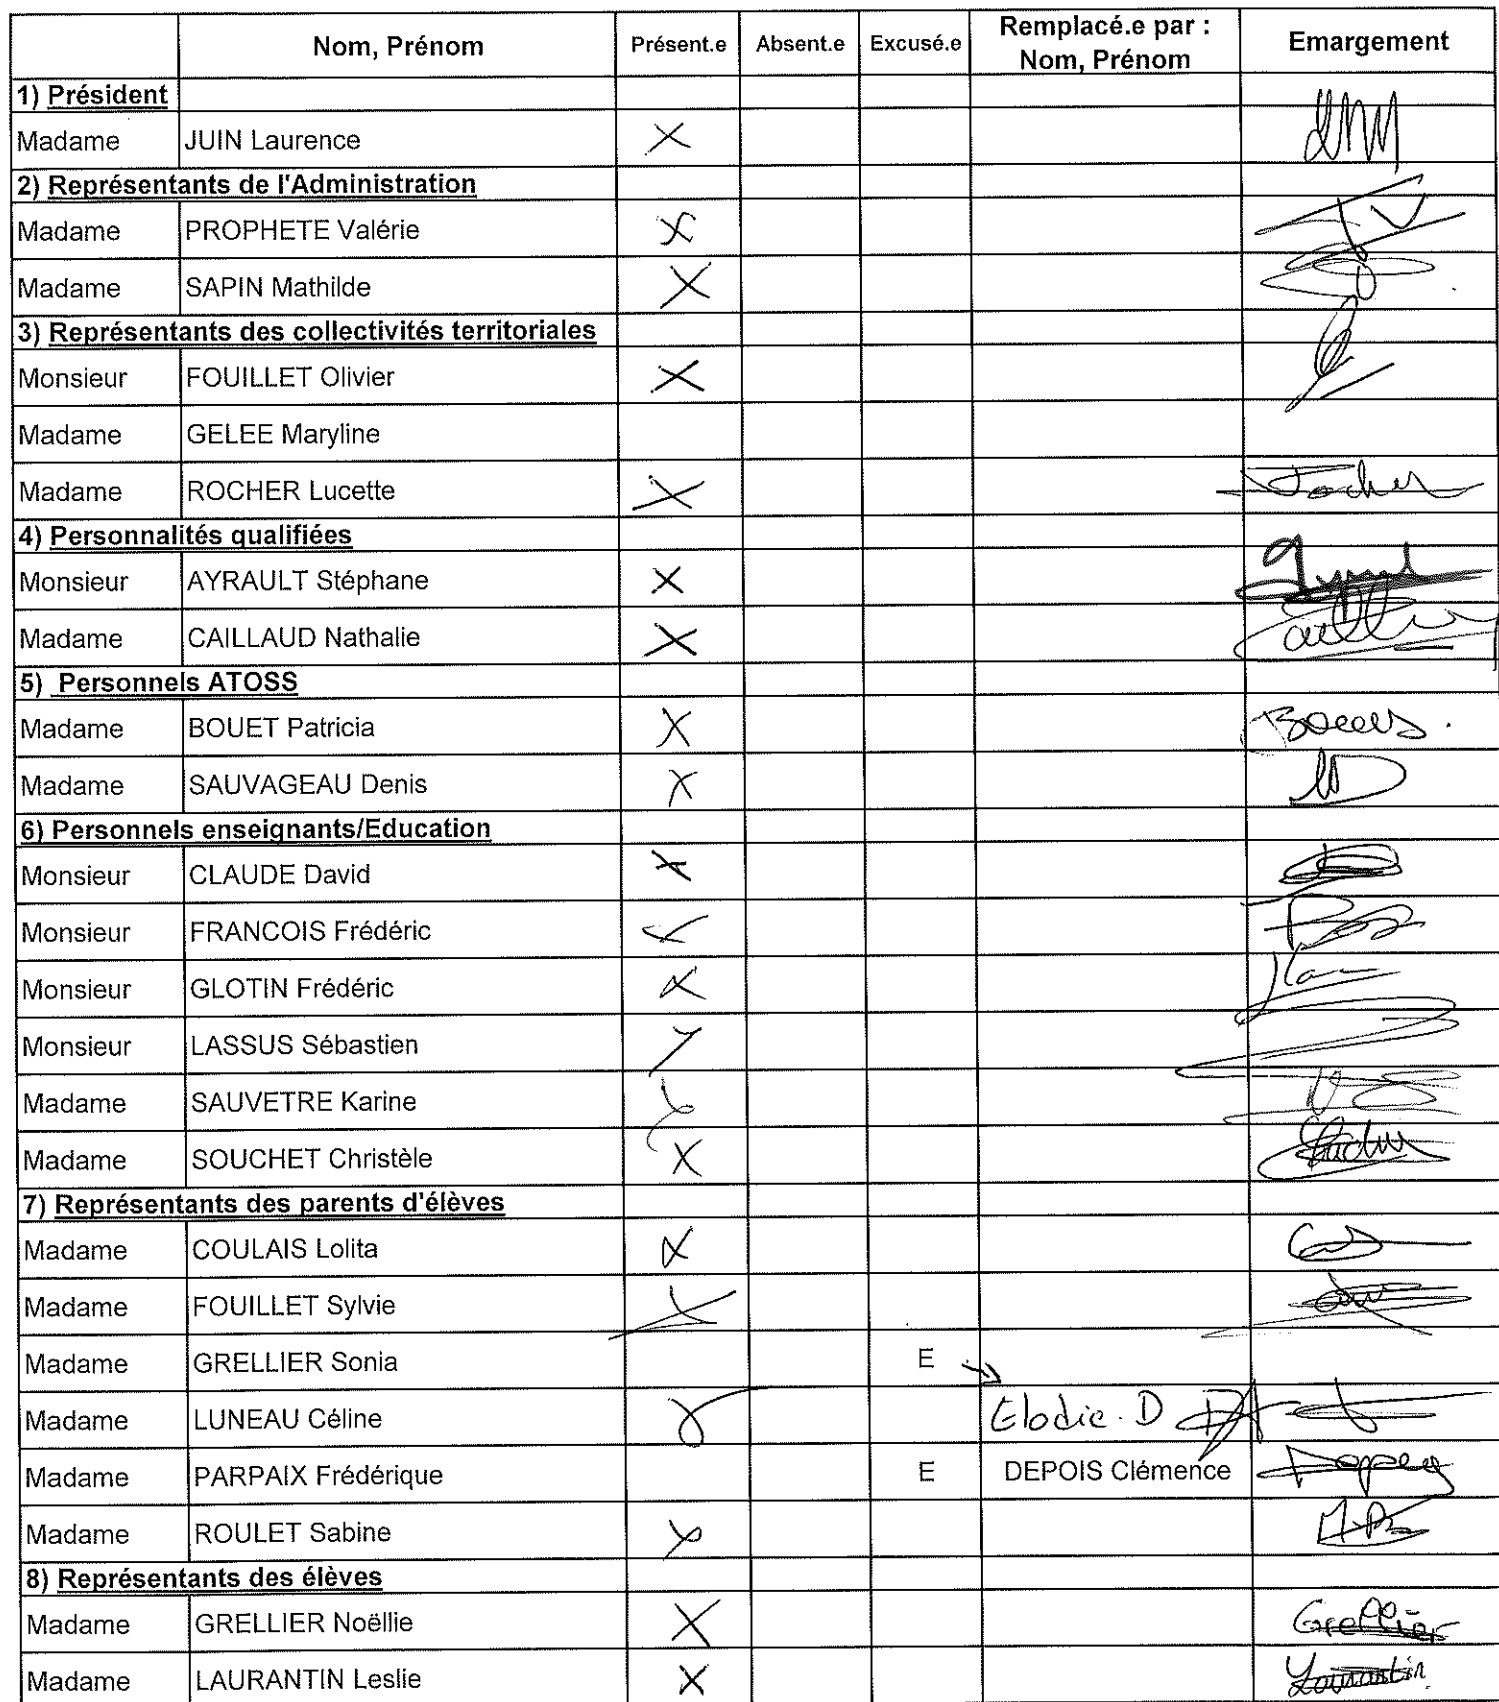 Nom, Prénom Présent.e Absent.e Excusé.e Remplacé.e par : Nom, Prénom Emargement
1) Président
Madame JUIN Laurence X
2) Représentants de l'Administration
Madame PROPHETE Valérie X
Madame SAPIN Mathilde X
3) Représentants des collectivités territoriales
Monsieur FOUILLET Olivier X
Madame GELEE Maryline
Madame ROCHER Lucette X
4) Personnalités qualifiées
Monsieur AYRAULT Stéphane X
Madame CAILLAUD Nathalie X
5) Personnels ATOSS
Madame BOUET Patricia X
Madame SAUVAGEAU Denis X
6) Personnels enseignants/Education
Monsieur CLAUDE David X
Monsieur FRANCOIS Frédéric X
Monsieur GLOTIN Frédéric X
Monsieur LASSUS Sébastien X
Madame SAUVETRE Karine X
Madame SOUCHET Christèle X
7) Représentants des parents d'élèves
Madame COULAIS Lolita X
Madame FOUILLET Sylvie X
Madame GRELLIER Sonia E
Madame LUNEAU Céline X Elodie. D
Madame PARPAIX Frédérique E DEPOIS Clémence
Madame ROULET Sabine X
8) Représentants des élèves
Madame GRELLIER Noëllie X Grellier
Madame LAURANTIN Leslie X Laurantin